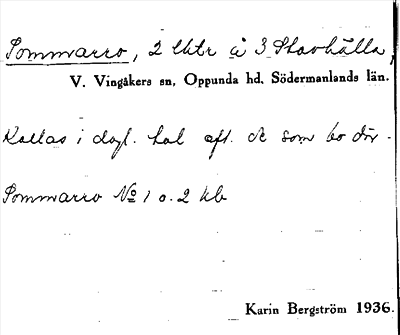 Sommarro, 2 lktr å 3 Stavhälla,
V. Vingåkers sn, Oppunda hd, Södermanlands län.
Kallas i dagl. tal eft. de som bo där.
Sommarro № 1 o. 2 kb
Karin Bergström 1936.